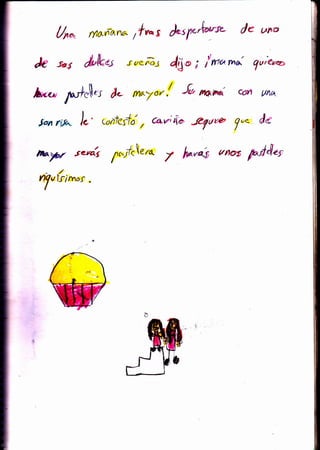 Una mañana, tras despertarse de uno
de sos dulces sueños dijo; ¡mamá quiero
hacer pasteles de mayor! Su mamá con una
sonrisa le contestó, cariño seguro que de
mayor serás pastelera y harás unos pasteles
riquísimos.